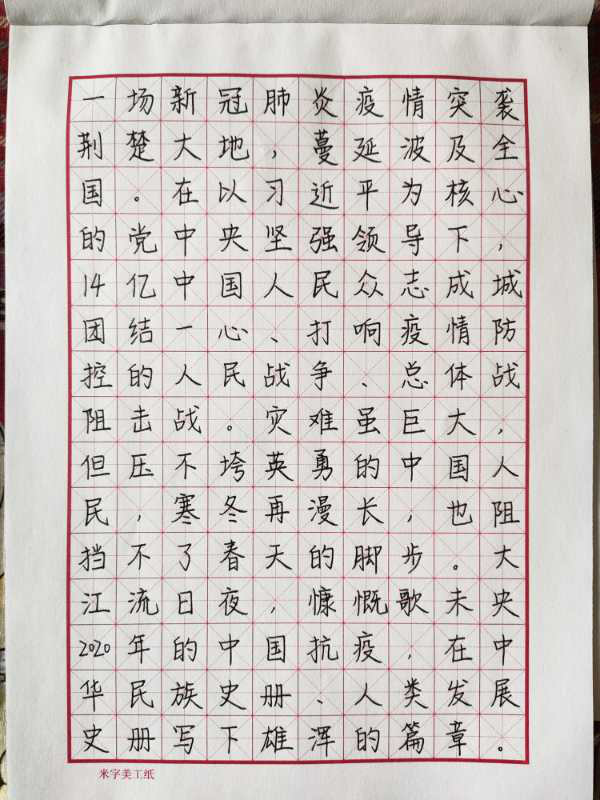 一场新冠肺炎疫情突袭
荆楚大地，蔓延波及全
国。在以习近平为核心
的党中央坚强领导下，
14亿中国人民众志成城
团结一心、打响疫情防
控的人民战争、总体战
阻击战。灾难虽巨大，
但压不垮英勇的中国人
民，寒冬再漫长，也阻
挡不了春天的脚步。大
江流日夜，慷慨歌未央
2020年的中国抗疫，在中
华民族史册、人类发展
史册写下雄浑的篇章。
米字美工纸